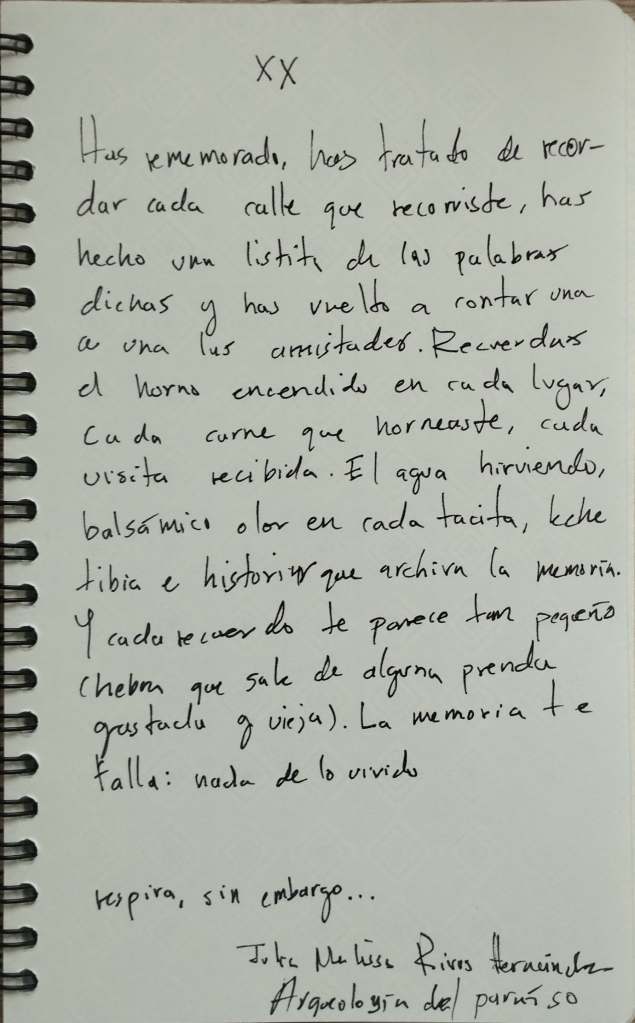 XX
Has rememorado, has tratado de recor-
dar cada calle que recorriste, has
hecho una listita de las palabras
dichas y has vuelto a contar una
a una las amistades. Recuerdas
el horno encendido en cada lugar,
Cada carne que horneaste, cada
visita recibida. El agua hirviendo,
balsámico olor en cada tacita, leche
tibia e historias que archiva la memoria.
Y cada recuerdo te parece tan pequeño
(hebra que sale de alguna prenda
gastada y vieja). La memoria te
falla: nada de lo vivido
respira, sin embargo...
Melissa Rivas Hernández
Arqueología del paraíso